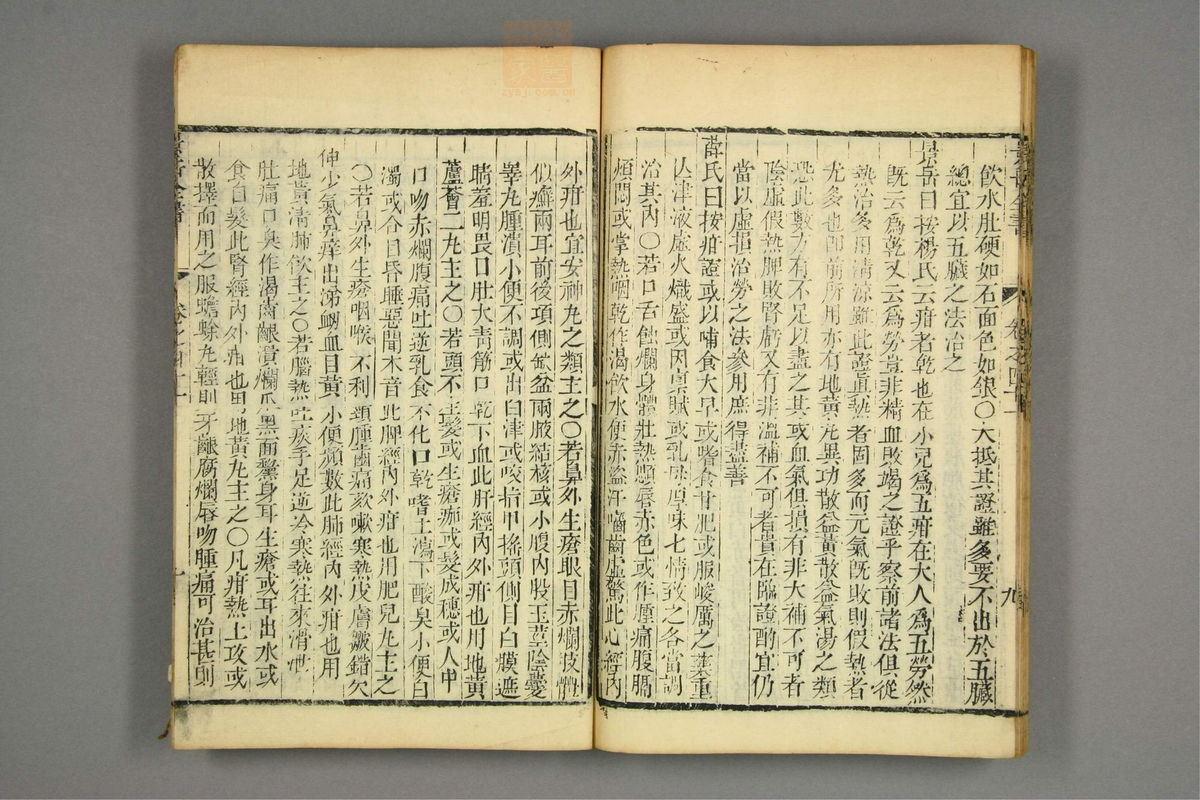 飲水肚硬如石面色如銀〇大抵其證雖多要不出於五臟
總宜以五臟之法治之
景岳曰按楊氏云疳者乾也在小兒爲五疳在大人爲五勞然
既云爲乾又云爲勞豈非精血敗竭之證乎察前諸法但從
熱治多用清涼雖此證眞熱者固多而元氣既敗則假熱者
尤多也即前所用亦有地黃丸異功散益黃散益氣湯之類
恐此數方有不足以盡之其或血氣俱損有非大補不可者
陰虛假熱脾敗腎虧又有非溫補不可者貴在臨證酌宜仍
當以虛損治勞之法參用庶得盡善
薛氏曰按疳證或以哺食太早或嗜食甘肥或服峻厲之藥重
亾津液虛火熾盛或因稟賦或乳母厚味七情致之各當調
治其內〇若口舌蝕爛身體壯熱顋唇赤色或作腫痛腹膈
煩悶或掌熱咽乾作渴飲水便赤盜汗嚙齒虛驚此心經內
外疳也宜安神丸之類主之〇若鼻外生瘡眼目赤爛肢體
似癬兩耳前後項側缺盆兩腋結核或小腹內股玉莖陰囊
睾丸腫潰小便不調或出白津或咬指甲搖頭側目白膜遮
睛羞明畏日肚大青筋口乾下血此肝經內外疳也用地黃
蘆薈二丸主之〇若頭不生髮或生瘡痂或髮成穗或人中
口吻赤爛腹痛吐逆乳食不化口乾嗜土瀉下酸臭小便白
濁或合目昏睡惡聞木音此脾經內外疳也用肥兒丸主之
〇若鼻外生瘡咽喉不利頸腫齒痛欬嗽寒熱皮膚皺錯欠
伸少氣鼻痒出涕衂血目黃小便頻數此肺經內外疳也用
地黃清肺飲主之〇若腦熱吐痰手足逆冷寒熱往來滑泄
肚痛口臭作渴齒齦潰爛爪黑面黧身耳生瘡或耳出水或
食自髮此腎經內外疳也用地黃丸主之〇凡疳熱上攻或
散擇而用之服蟾蜍丸輕則牙齦腐爛唇吻腫痛可治甚則
卷之四十一
九
卷之四十一
九
zysj.com.cn